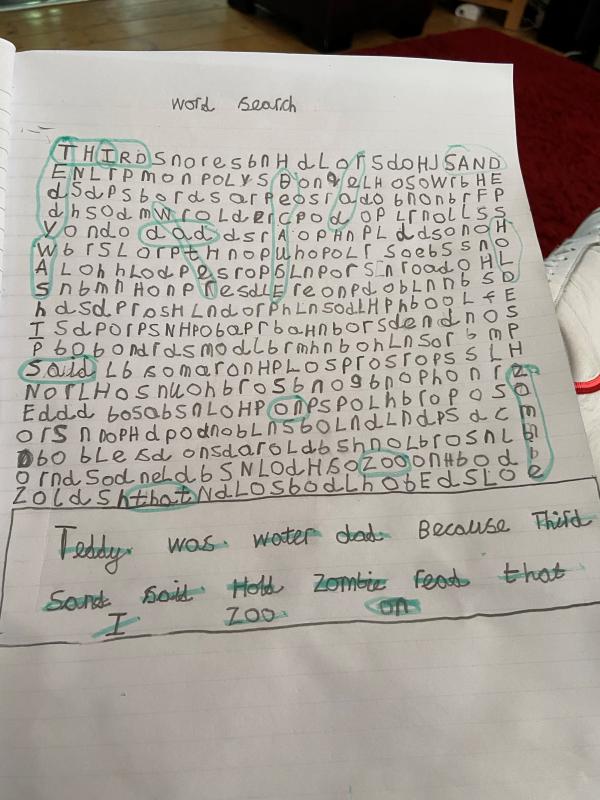 word search
THIRDSnoresbnHdLorSdoHJSAND
ENLTPmonPOLYSBongeLHOSOWrbHE
dSdPSbordSarPeosradobnonbrFP
dhSOdmWroLdercPodoPLrnoLLSS
YondodaddSrAOPHnPLddSonoH
WbrSLorPtHnoPuhoPOLrSoebSSnO
ALohhLodPesroPSLnPorSinroadOHL
SnbmnHonPresdLEreonPdobLnnbSD
hdSdProSHLndorPhLnSodLHPhbooLfE
ISdPorPSNHPObaPrbaHnborSdendnOS
PbobondrdSmodLbrmhnbohLnSorbmP
SaidLbSomaronHPLOSProSroPSSLH
NorLHOSnuohbroSbnogbnoPhonrz
EdddboSabSnLOHPonPSPOLhbroPoSo
orSnDOPHdPodnobLnSboLndLndPSdcm
Dboble SdonSdaroLdbShnoLbroSnLb
orndSodneLdbSNLOdHSoZOOonHbodi
ZOLdShthatNdLOSbOdLhobEdSLOe
Teddy was water dad Because Third
Sand said Hold Zombie read that
I ZOO on